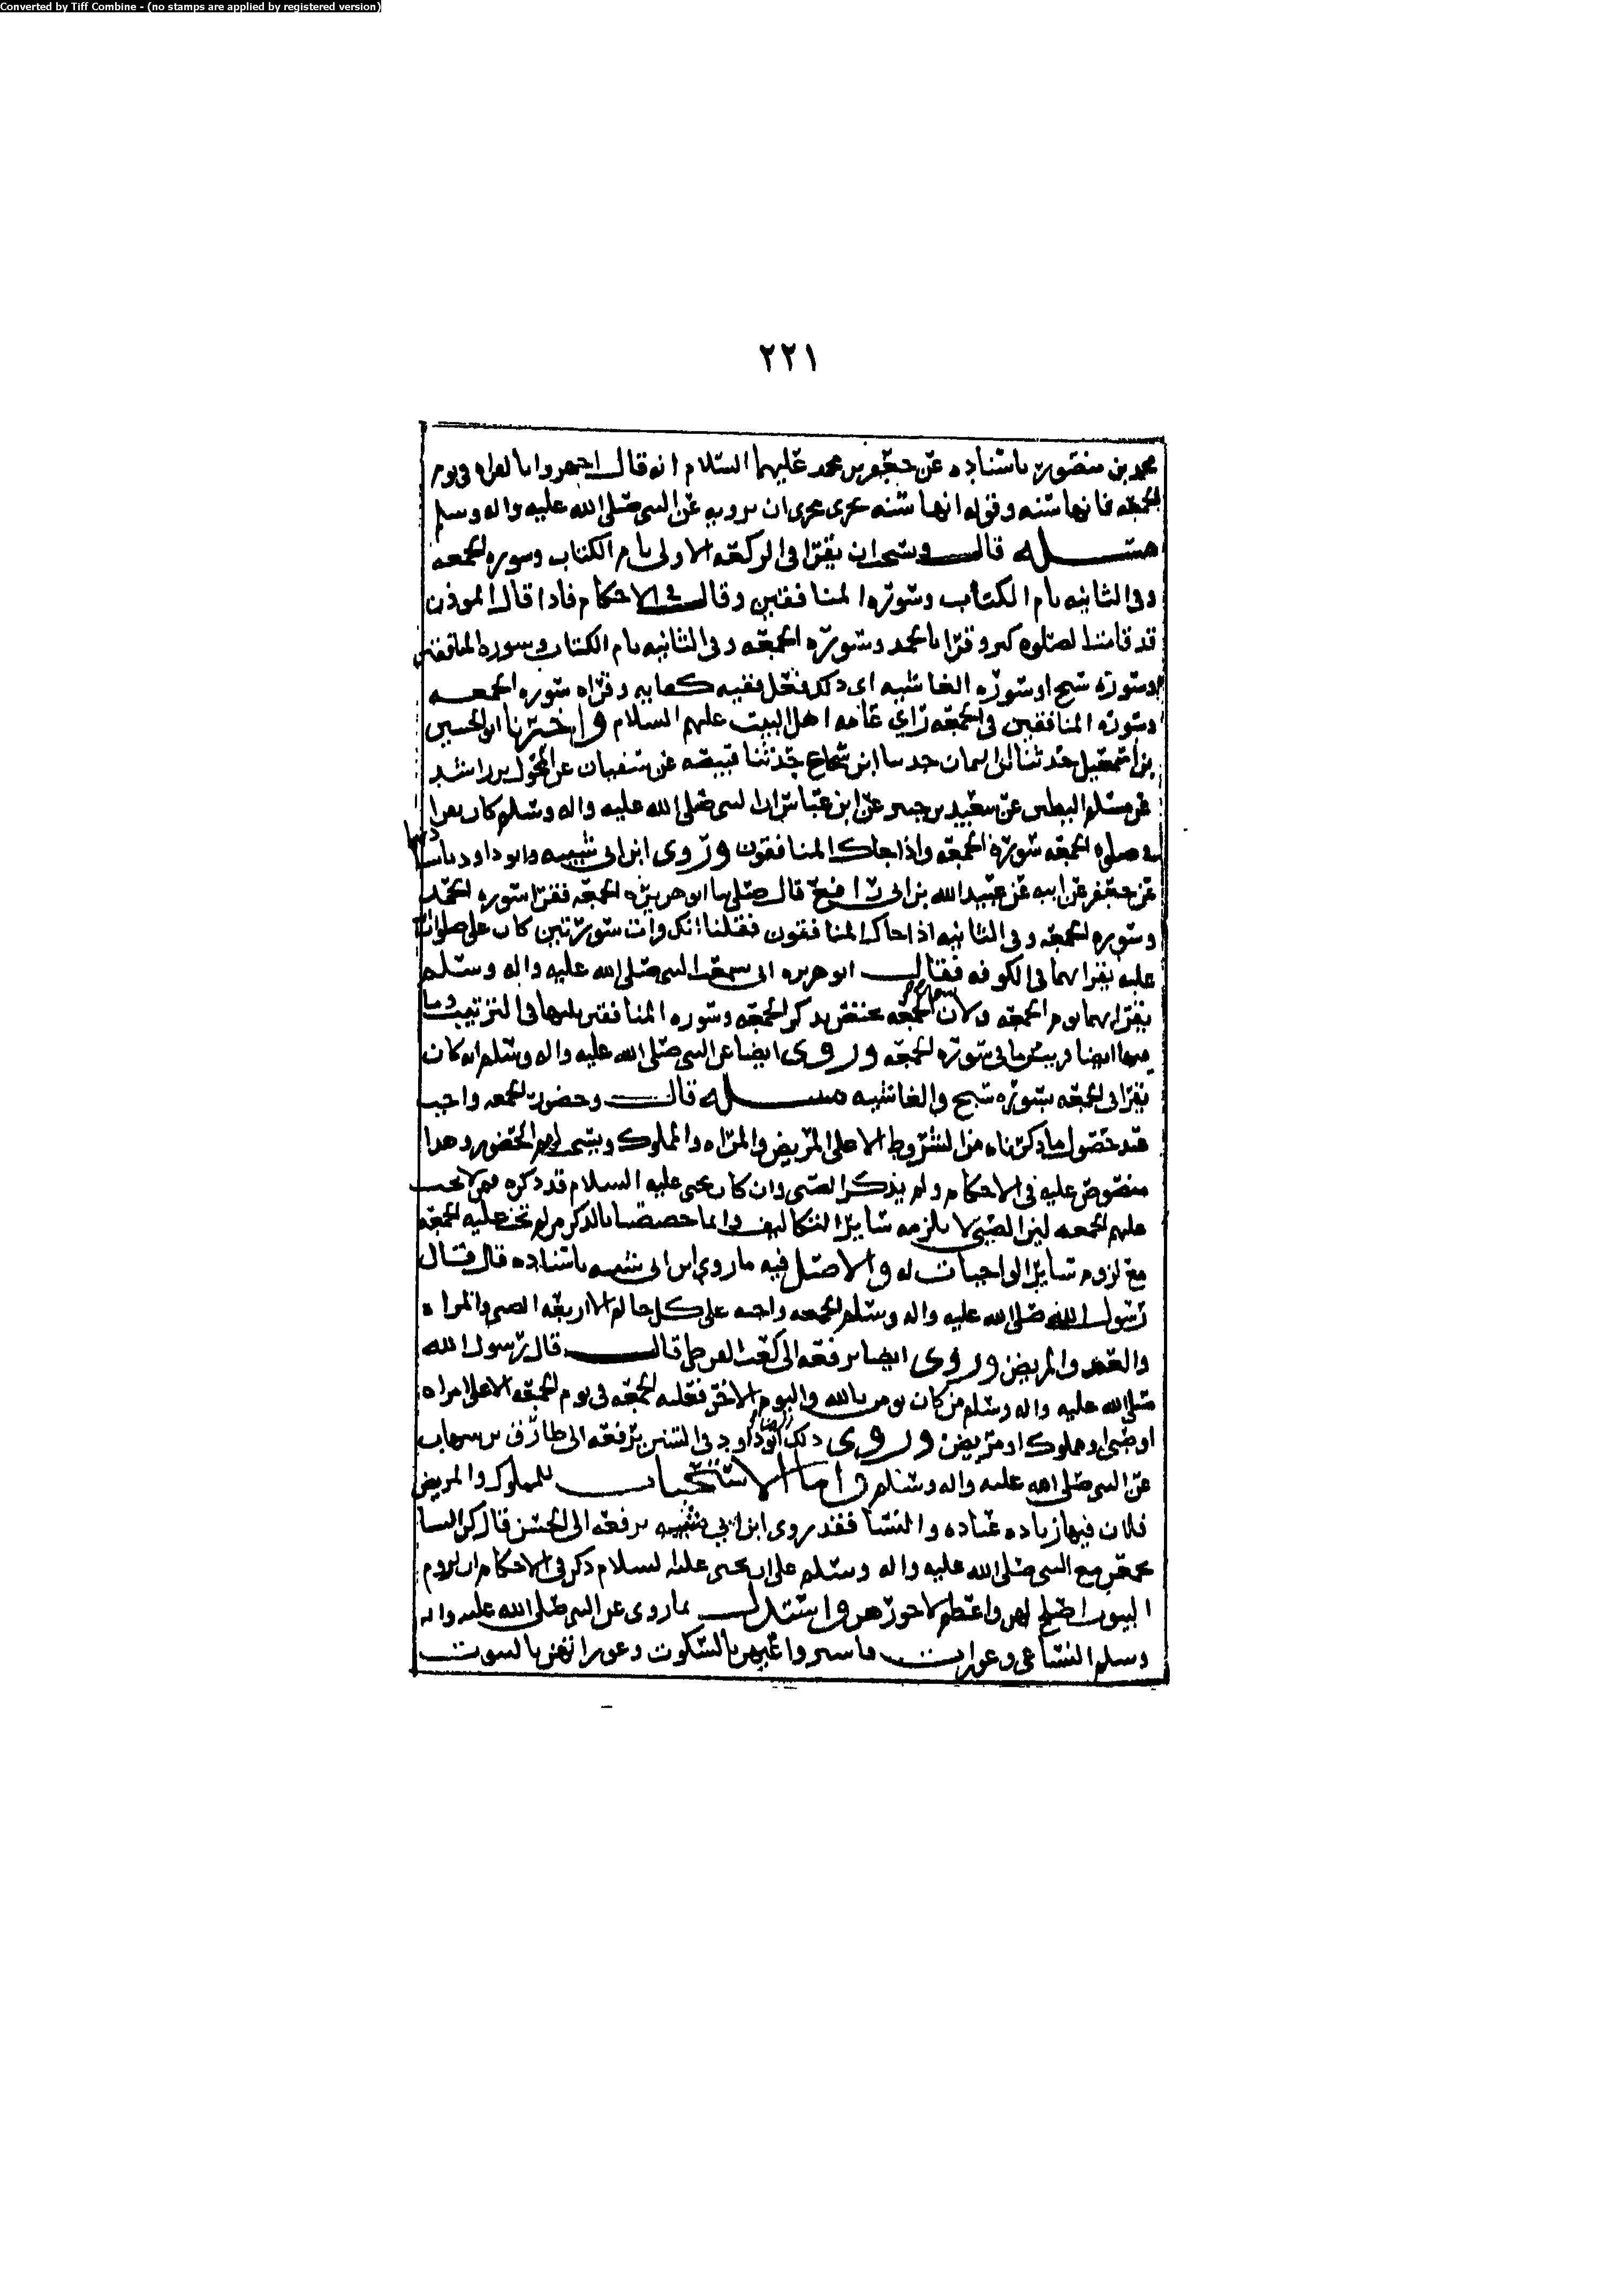 Converted by Tiff Combine - (no stamps are applied by registered version)
٢٢١
محمد بن منصور باسناده عن جعفر بن محمد عليهما السلام انه قال اجهروا بالقراه في يوم
الجمعه فانها سنه وقوله انها سنه يجري مجرى ان يرويه عن النبي صلى الله عليه واله وسلم
مسله قال ويستحب ان يقرا في الركعه الاولى بام الكتاب وسوره الجمعه
وفي الثانيه بام الكتاب وسوره المنافقين وقال في الاحكام فاذا قال الموذن
قد قامت الصلوه كبر وقرا بالحمد وسوره الجمعه وفي الثانيه بام الكتاب وسوره المنافقين
او سوره سبح او سوره الغاشيه اي ذلك فعل ففيه كفايه وقراه سوره الجمعه
وسوره المنافقين في الجمعه راي عامه اهل البيت عليهم السلام واخبرنا ابو الحسين
بن اسمعيل حدثنا ابن اليمان حدثنا ابن شجاع حدثنا قبيصه عن سفيان عن المخول بن راشد
عن مسلم البطين عن سعيد بن جبير عن ابن عباس ان النبي صلى الله عليه واله وسلم كان يقرا
في صلوه الجمعه سوره الجمعه واذا جاك المنافقون وروى ابن ابي شيبه وابو داود باسنادهما
عن جعفر عن ابيه عن عبيد الله بن ابي رافع قال صلى بنا ابو هريره الجمعه فقرا سوره الحمد
وسوره الجمعه وفي الثانيه اذا جاك المنافقون فقلنا انك قرات سورتين كان علي صلوات
عليه يقرا بهما في الكوفه فقال ابو هريره اني سمعت النبي صلى الله عليه واله وسلم
يقرا بهما يوم الجمعه ولان الجمعه تختص بذكر الجمعه وسوره المنافقين يليها في الترتيب وما
فيها ايضا قريب مما في سوره الجمعه وروى ايضا عن النبي صلى الله عليه واله وسلم انه كان
يقرا في الجمعه بسوره سبح والغاشيه مسله قال وحضور الجمعه واجب
عند حصول ما ذكرناه من الشروط الا على المريض والمراه والمملوك ويستحب لهم الحضور وهذا
منصوص عليه في الاحكام ولم يذكر الصبي وان كان يحيى عليه السلام قد ذكره فيمن لا يجب
عليهم الجمعه لين الصبي لا يلزمه ساير التكاليف وانما خصصنا بالذكر من لم تجب عليه الجمعه
مع لزوم ساير الواجبات له والاصل فيه ما روى ابن ابي شيبه باسناده قال قال
رسول الله صلى الله عليه واله وسلم الجمعه واجبه على كل حالم الا اربعه الصبي والمراه
والعبد والمريض وروى ايضا يرفعه الى كعب القرظي قال قال رسول الله
صلى الله عليه واله وسلم من كان يومن بالله واليوم الاخر فعليه الجمعه في يوم الجمعه الا على امراه
او صبي او مملوك او مريض وروى ذلك ايضا ابو داود في السنن يرفعه الى طارق بن شهاب
عن النبي صلى الله عليه واله وسلم واما الاستحباب للمملوك والمريض
فلان فيها زياده عباده والنسا فقد روى ابن ابي شيبه يرفعه الى الحسن قال كن النسا
يجمعن مع النبي صلى الله عليه واله وسلم على ان يحيى عليه السلام ذكر في الاحكام ان لزوم
البيوت اصلح لهن واعظم لاجورهن واستدل بما روى عن النبي صلى الله عليه واله
وسلم النسا عي وعورات فاستروا عيهن بالسكوت وعوراتهن بالبيوت